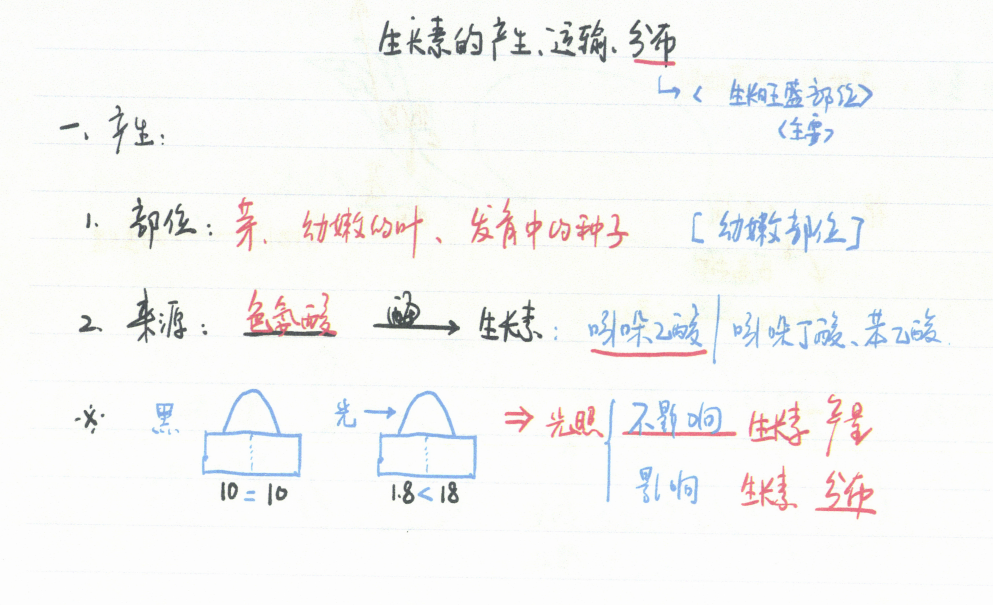 生长素的产生、运输、分布
↳ < 生长旺盛部位>
<主要>
一、产生：
1. 部位：芽、幼嫩的叶、发育中的种子 [幼嫩部位]
2. 来源：色氨酸 酶→ 生长素：吲哚乙酸 | 吲哚丁酸、苯乙酸
※ 黑 光→ ⇒ 光照 { 不影响 生长素 产量
影响 生长素 分布
10 = 10 1.8 < 18